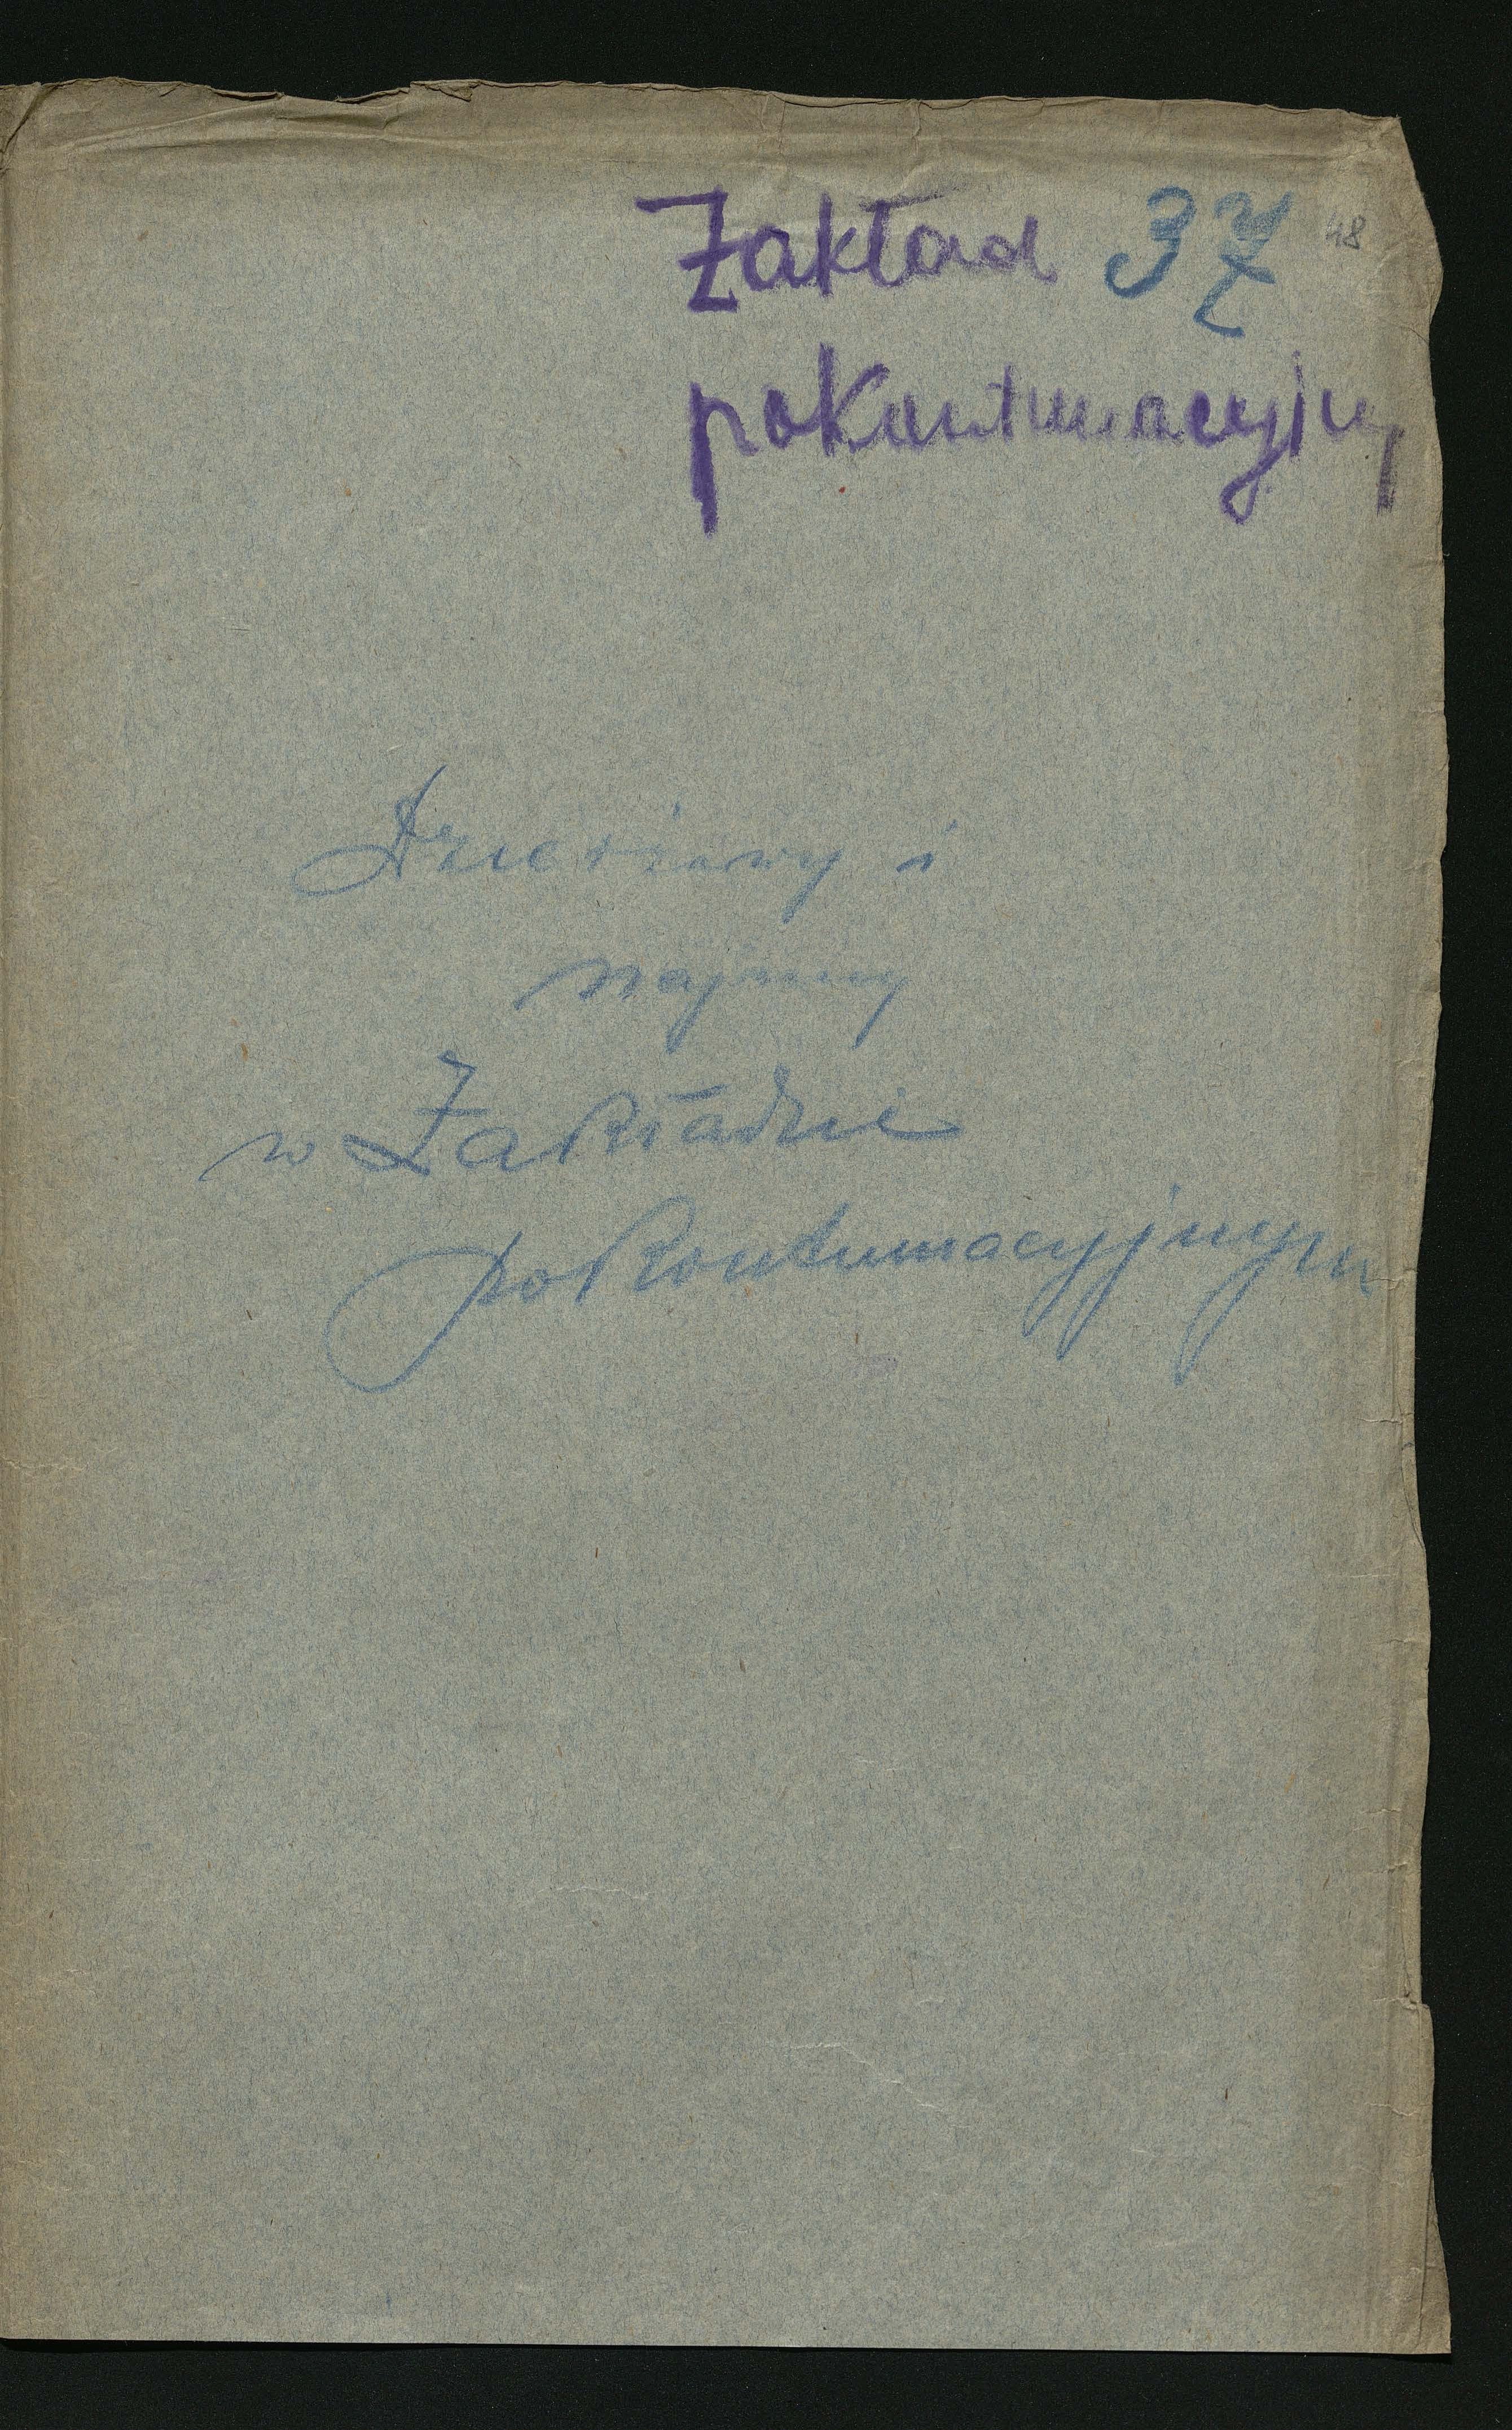 Zakład 37 48
pokontumacyjny
Dzierżawy i
najmy
w Zakładzie
pokontumacyjnym